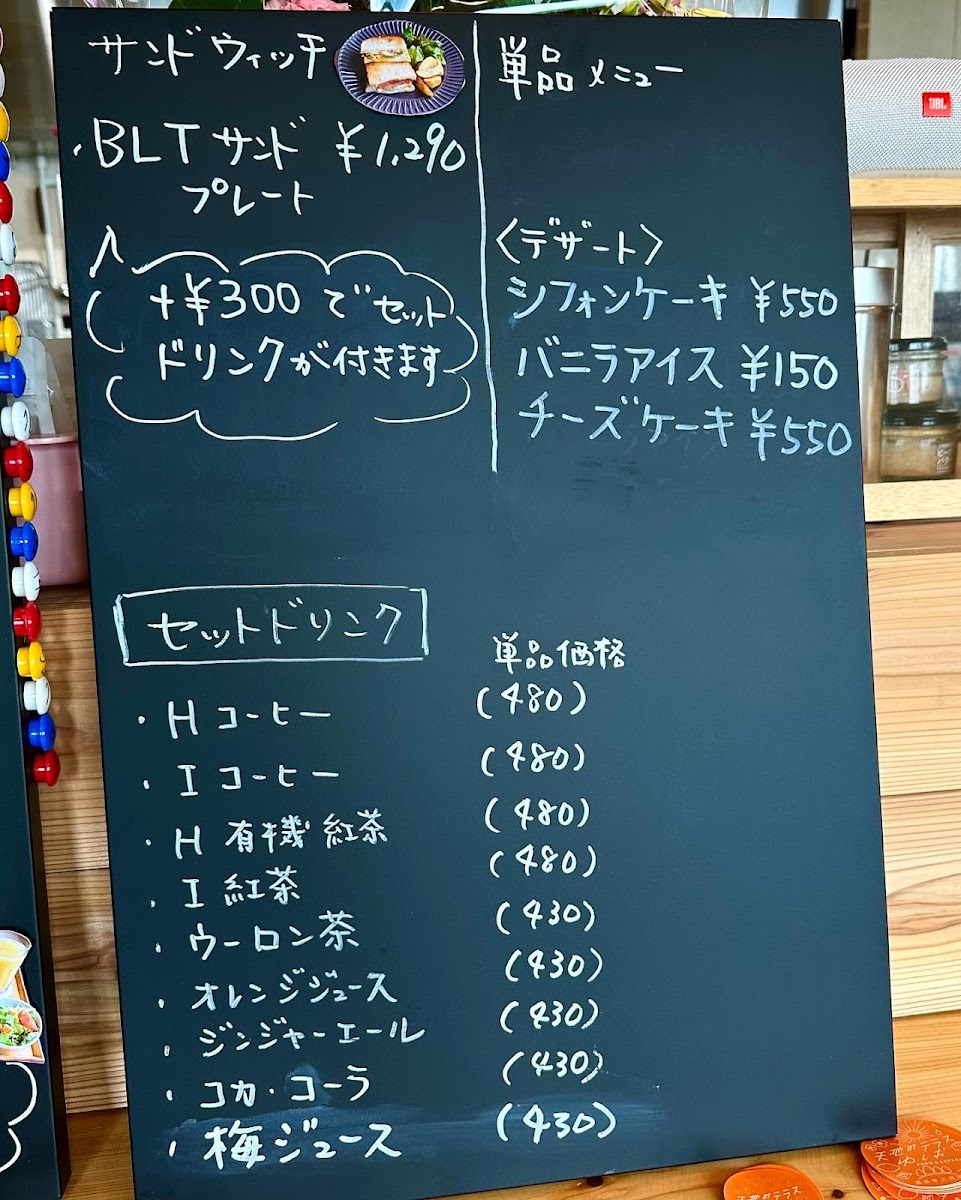 サンドウィッチ
・BLTサンド ¥1,290
プレート
+¥300でセット
ドリンクが付きます
単品メニュー
〈デザート〉
シフォンケーキ ¥550
バニラアイス ¥150
チーズケーキ ¥550
セットドリンク
単品価格
・H コーヒー (480)
・I コーヒー (480)
・H 有機紅茶 (480)
・I 紅茶 (480)
・ウーロン茶 (430)
・オレンジジュース (430)
・ジンジャーエール (430)
・コカ・コーラ (430)
・梅ジュース (430)
JBL
天地のテラス
ゆしお
天地のテラス